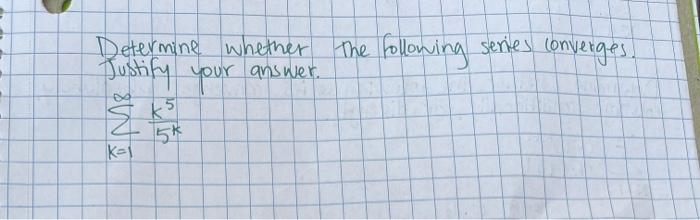 Determine whether the following series converges.
Justify your answer.
∞
∑ k⁵/5ᵏ
k=1